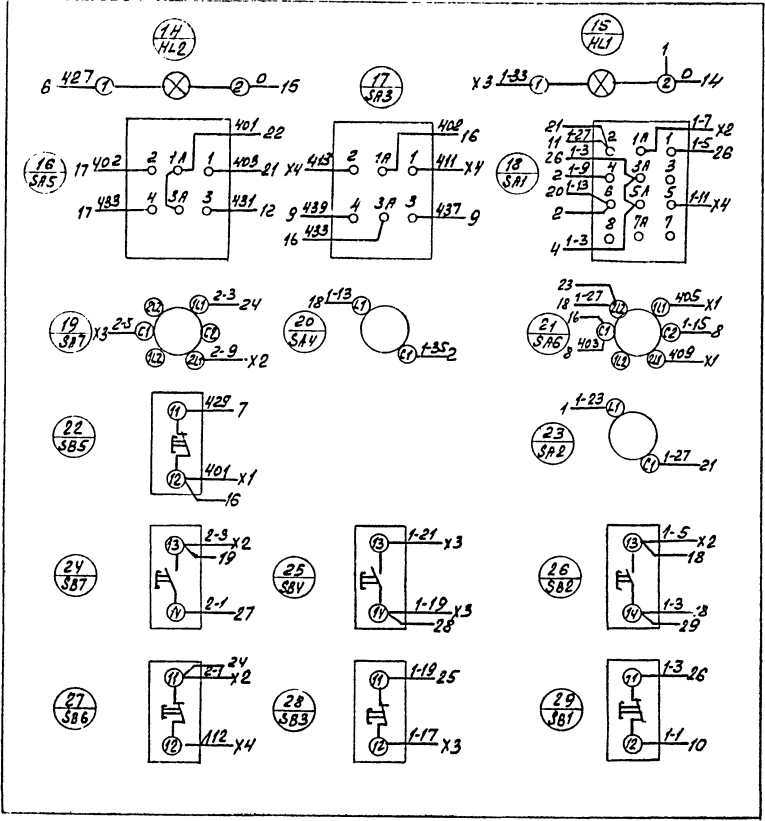 14
HL2
6 427 1 2 0 15
15
HL1
1
X3 1-33 1 2 0 14
17
SA3
16
SA5
401 22
17 402 2 1A 1 403 21
17 433 4 3A 3 431 12
402
16
X4 413 2 1A 1 411 X4
9 439 4 3A 3 437 9
16 433
18
SA1
21
11 1-27 2 1A 1 1-7 X2
26 1-3 1-5 26
2 1-9 4 3A 3
20 1-13 6 5A 5 1-11 X4
2
8 7A 7
4 1-3
19
SA7
2L2 1L1 2-3 24
X3 2-5 C1 C2
1L2 2L1 2-9 X2
20
SA4
18 1-13 L1
C1 1-35 2
21
SA6
23
18 1-27 2L2 1L1 405 X1
16 C1 C2 1-15 8
8 403
1L2 2L1 409 X1
22
SB5
11 429 7
12 401 X1
16
23
SA2
1 1-23 L1
C1 1-27 21
24
SB7
13 2-3 X2
19
14 2-1 27
25
SB4
13 1-21 X3
14 1-19 X3
28
26
SB2
13 1-5 X2
18
14 1-3 18
29
27
SB6
24
11 2-1 X2
12 112 X4
28
SB3
11 1-19 25
12 1-17 X3
29
SB1
11 1-3 26
12 1-1 10